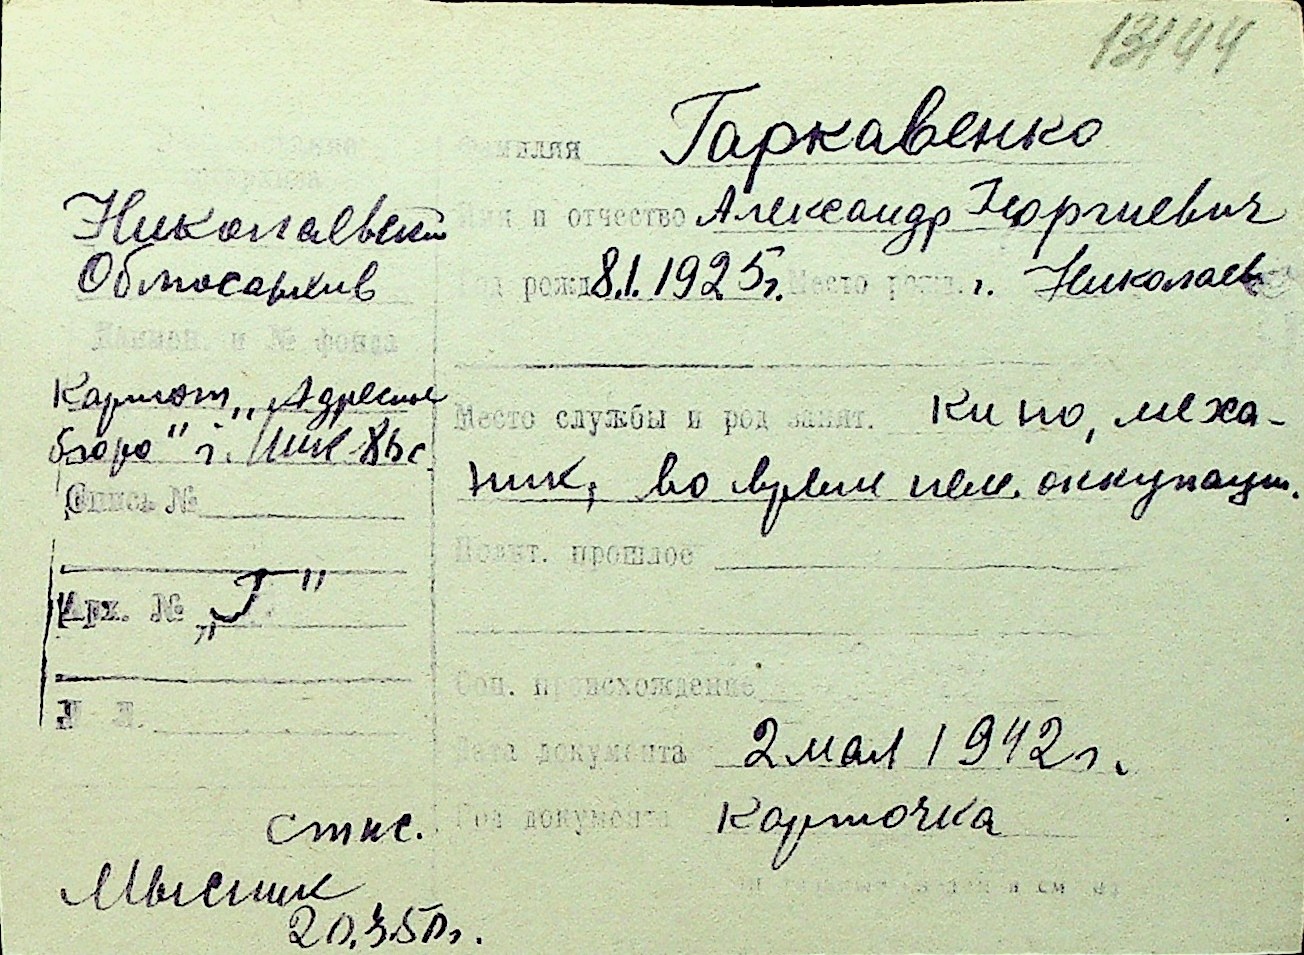 13144
Фамилия Гаркавенко
Николаевский
Облгосархив
Имя и отчество Александр Георгиевич
Год рожд. 8.1.1925г. Место рожд. г. Николаев
Наимен. и № фонда
Картот. „Адресное
бюро" г.
Место службы и род занят. кино, меха-
ник, во время нем. оккупации.
Опись №
Полит. прошлое
Арх. № „Г."
Соц. происхождение
Л Л.
Дата документа 2 мая 1942г.
Род документа Карточка
спис.
Мысник
20.3.50г.